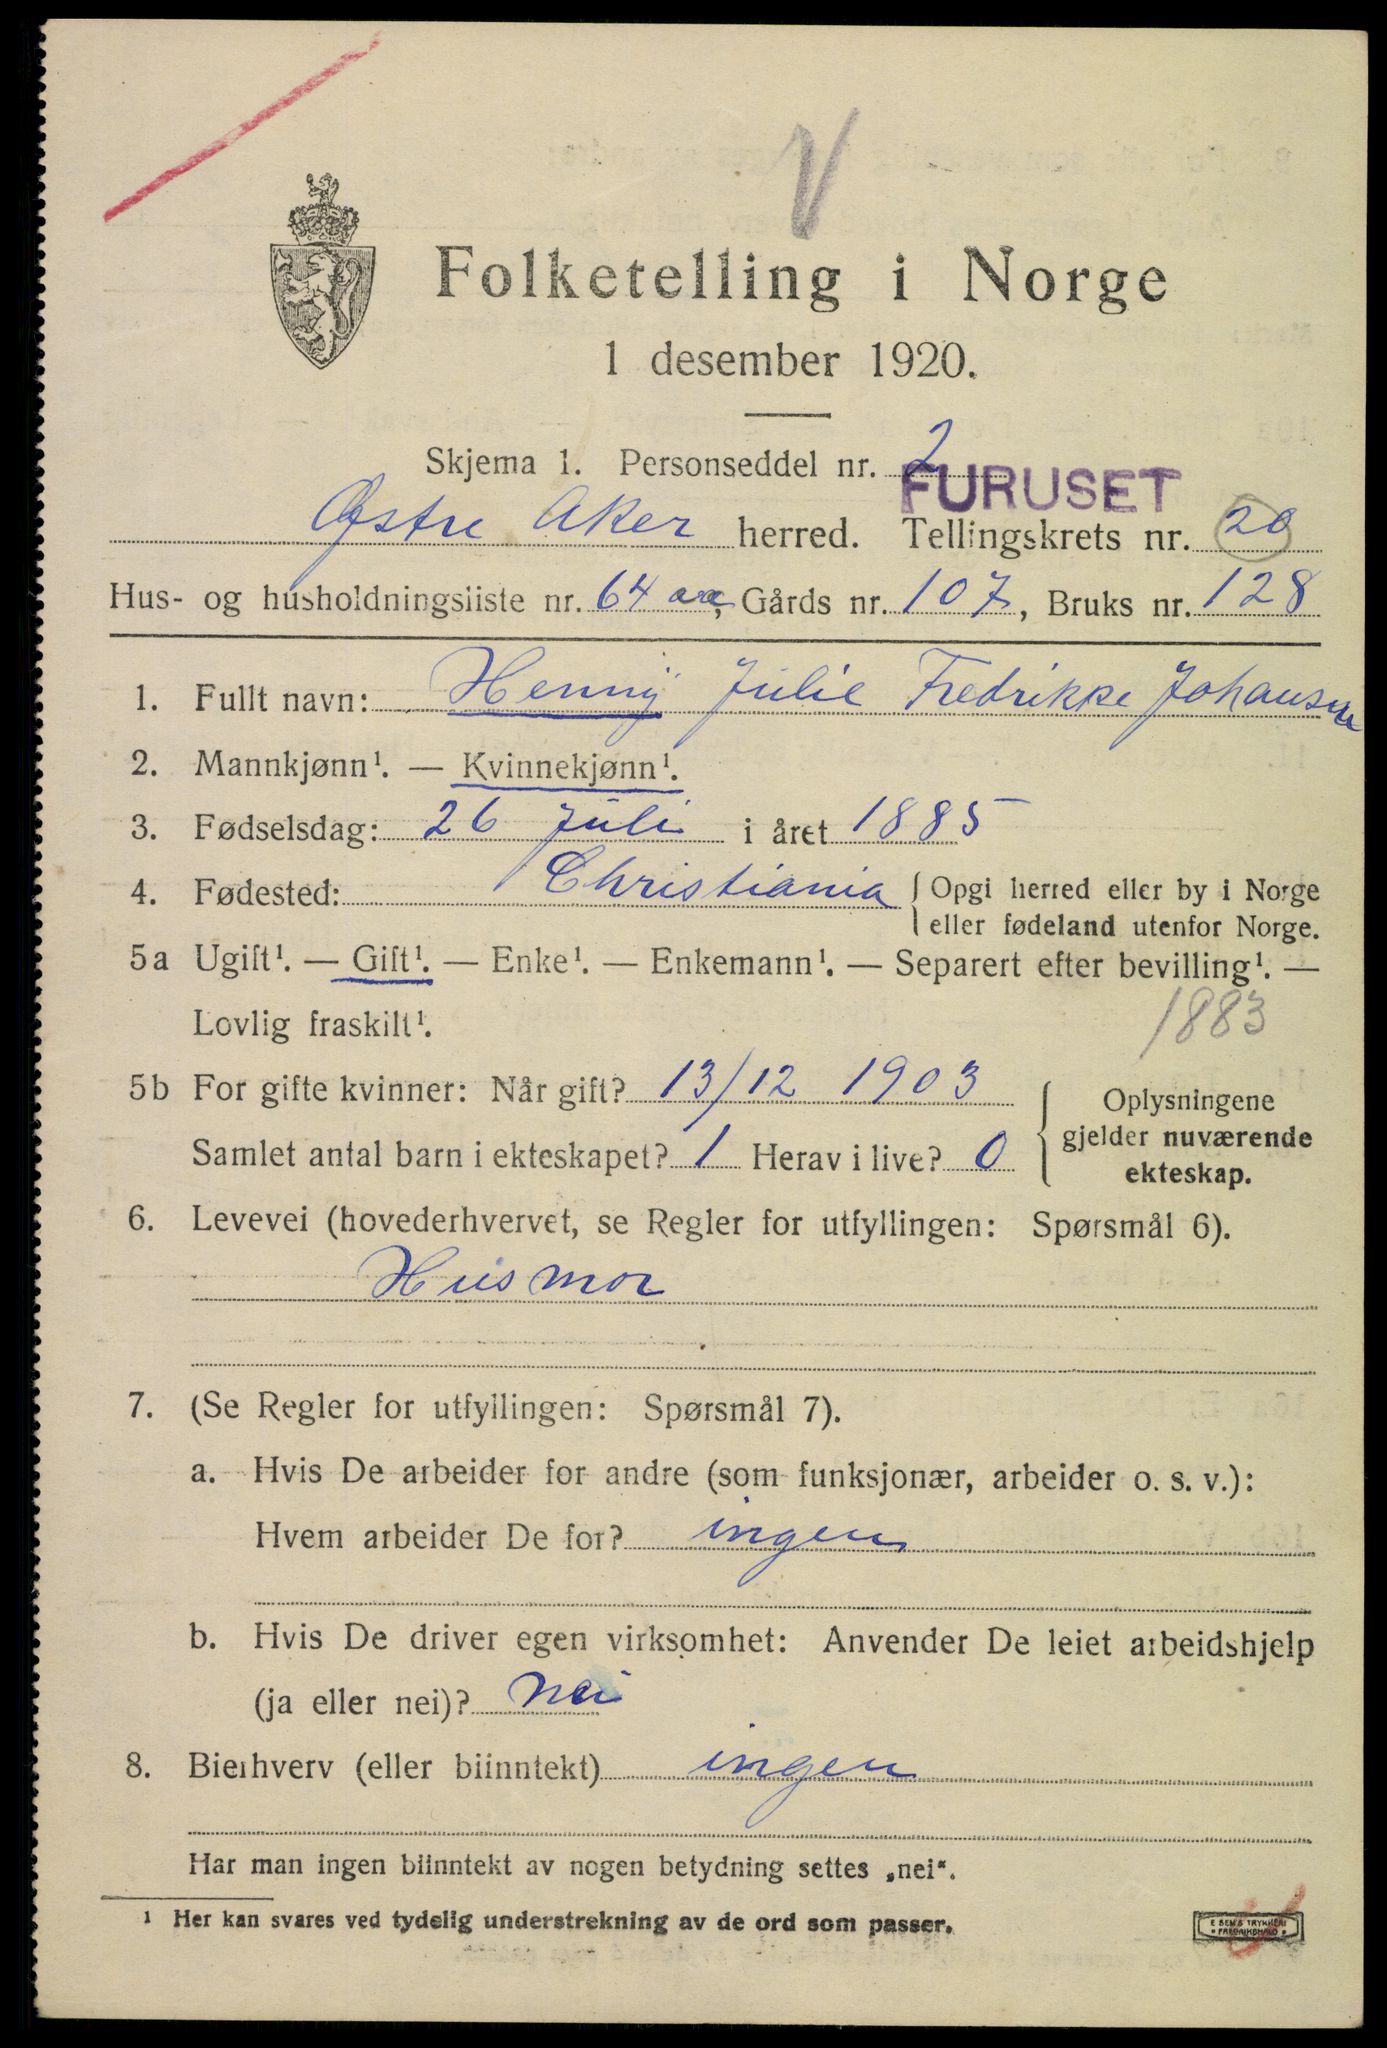 V
Folketelling i Norge
1 desember 1920.
Skjema 1. Personseddel nr. 2
FURUSET
Østre Aker herred. Tellingskrets nr. 20
Hus- og husholdningsliste nr. 64 aa, Gårds nr. 107, Bruks nr. 128
1. Fullt navn: Henny Julie Fredrikke Johansen
2. Mannkjønn¹. — Kvinnekjønn¹.
3. Fødselsdag: 26 Juli i året 1885
4. Fødested: Christiania { Opgi herred eller by i Norge
eller fødeland utenfor Norge.
5a Ugift¹. — Gift¹. — Enke¹. — Enkemann¹. — Separert efter bevilling¹. —
Lovlig fraskilt¹. 1883
5b For gifte kvinner: Når gift? 13/12 1903
Samlet antal barn i ekteskapet? 1 Herav i live? 0
{ Oplysningene
gjelder nuværende
ekteskap.
6. Levevei (hovederhvervet, se Regler for utfyllingen: Spørsmål 6).
Husmor
7. (Se Regler for utfyllingen: Spørsmål 7).
a. Hvis De arbeider for andre (som funksjonær, arbeider o. s. v.):
Hvem arbeider De for? ingen
b. Hvis De driver egen virksomhet: Anvender De leiet arbeidshjelp
(ja eller nei)? nei
8. Bierhverv (eller biinntekt) ingen
Har man ingen biinntekt av nogen betydning settes „nei“.
¹ Her kan svares ved tydelig understrekning av de ord som passer.
E SEM'S TRYKKERI
* FREDRIKSHALD *